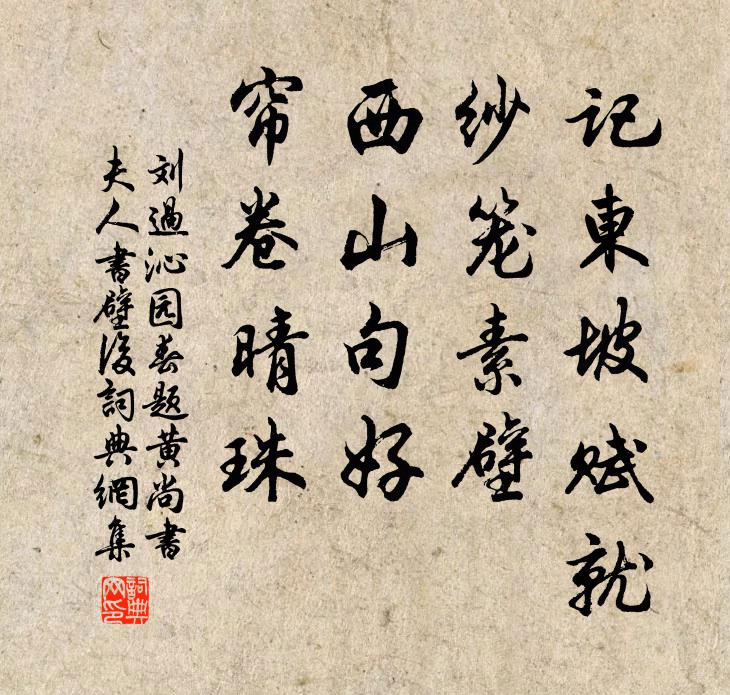 记東坡赋就
纱笼素壁
西山句好
帘卷晴珠
刘過沁园春题黄尚書
夫人書壁後詞典網集